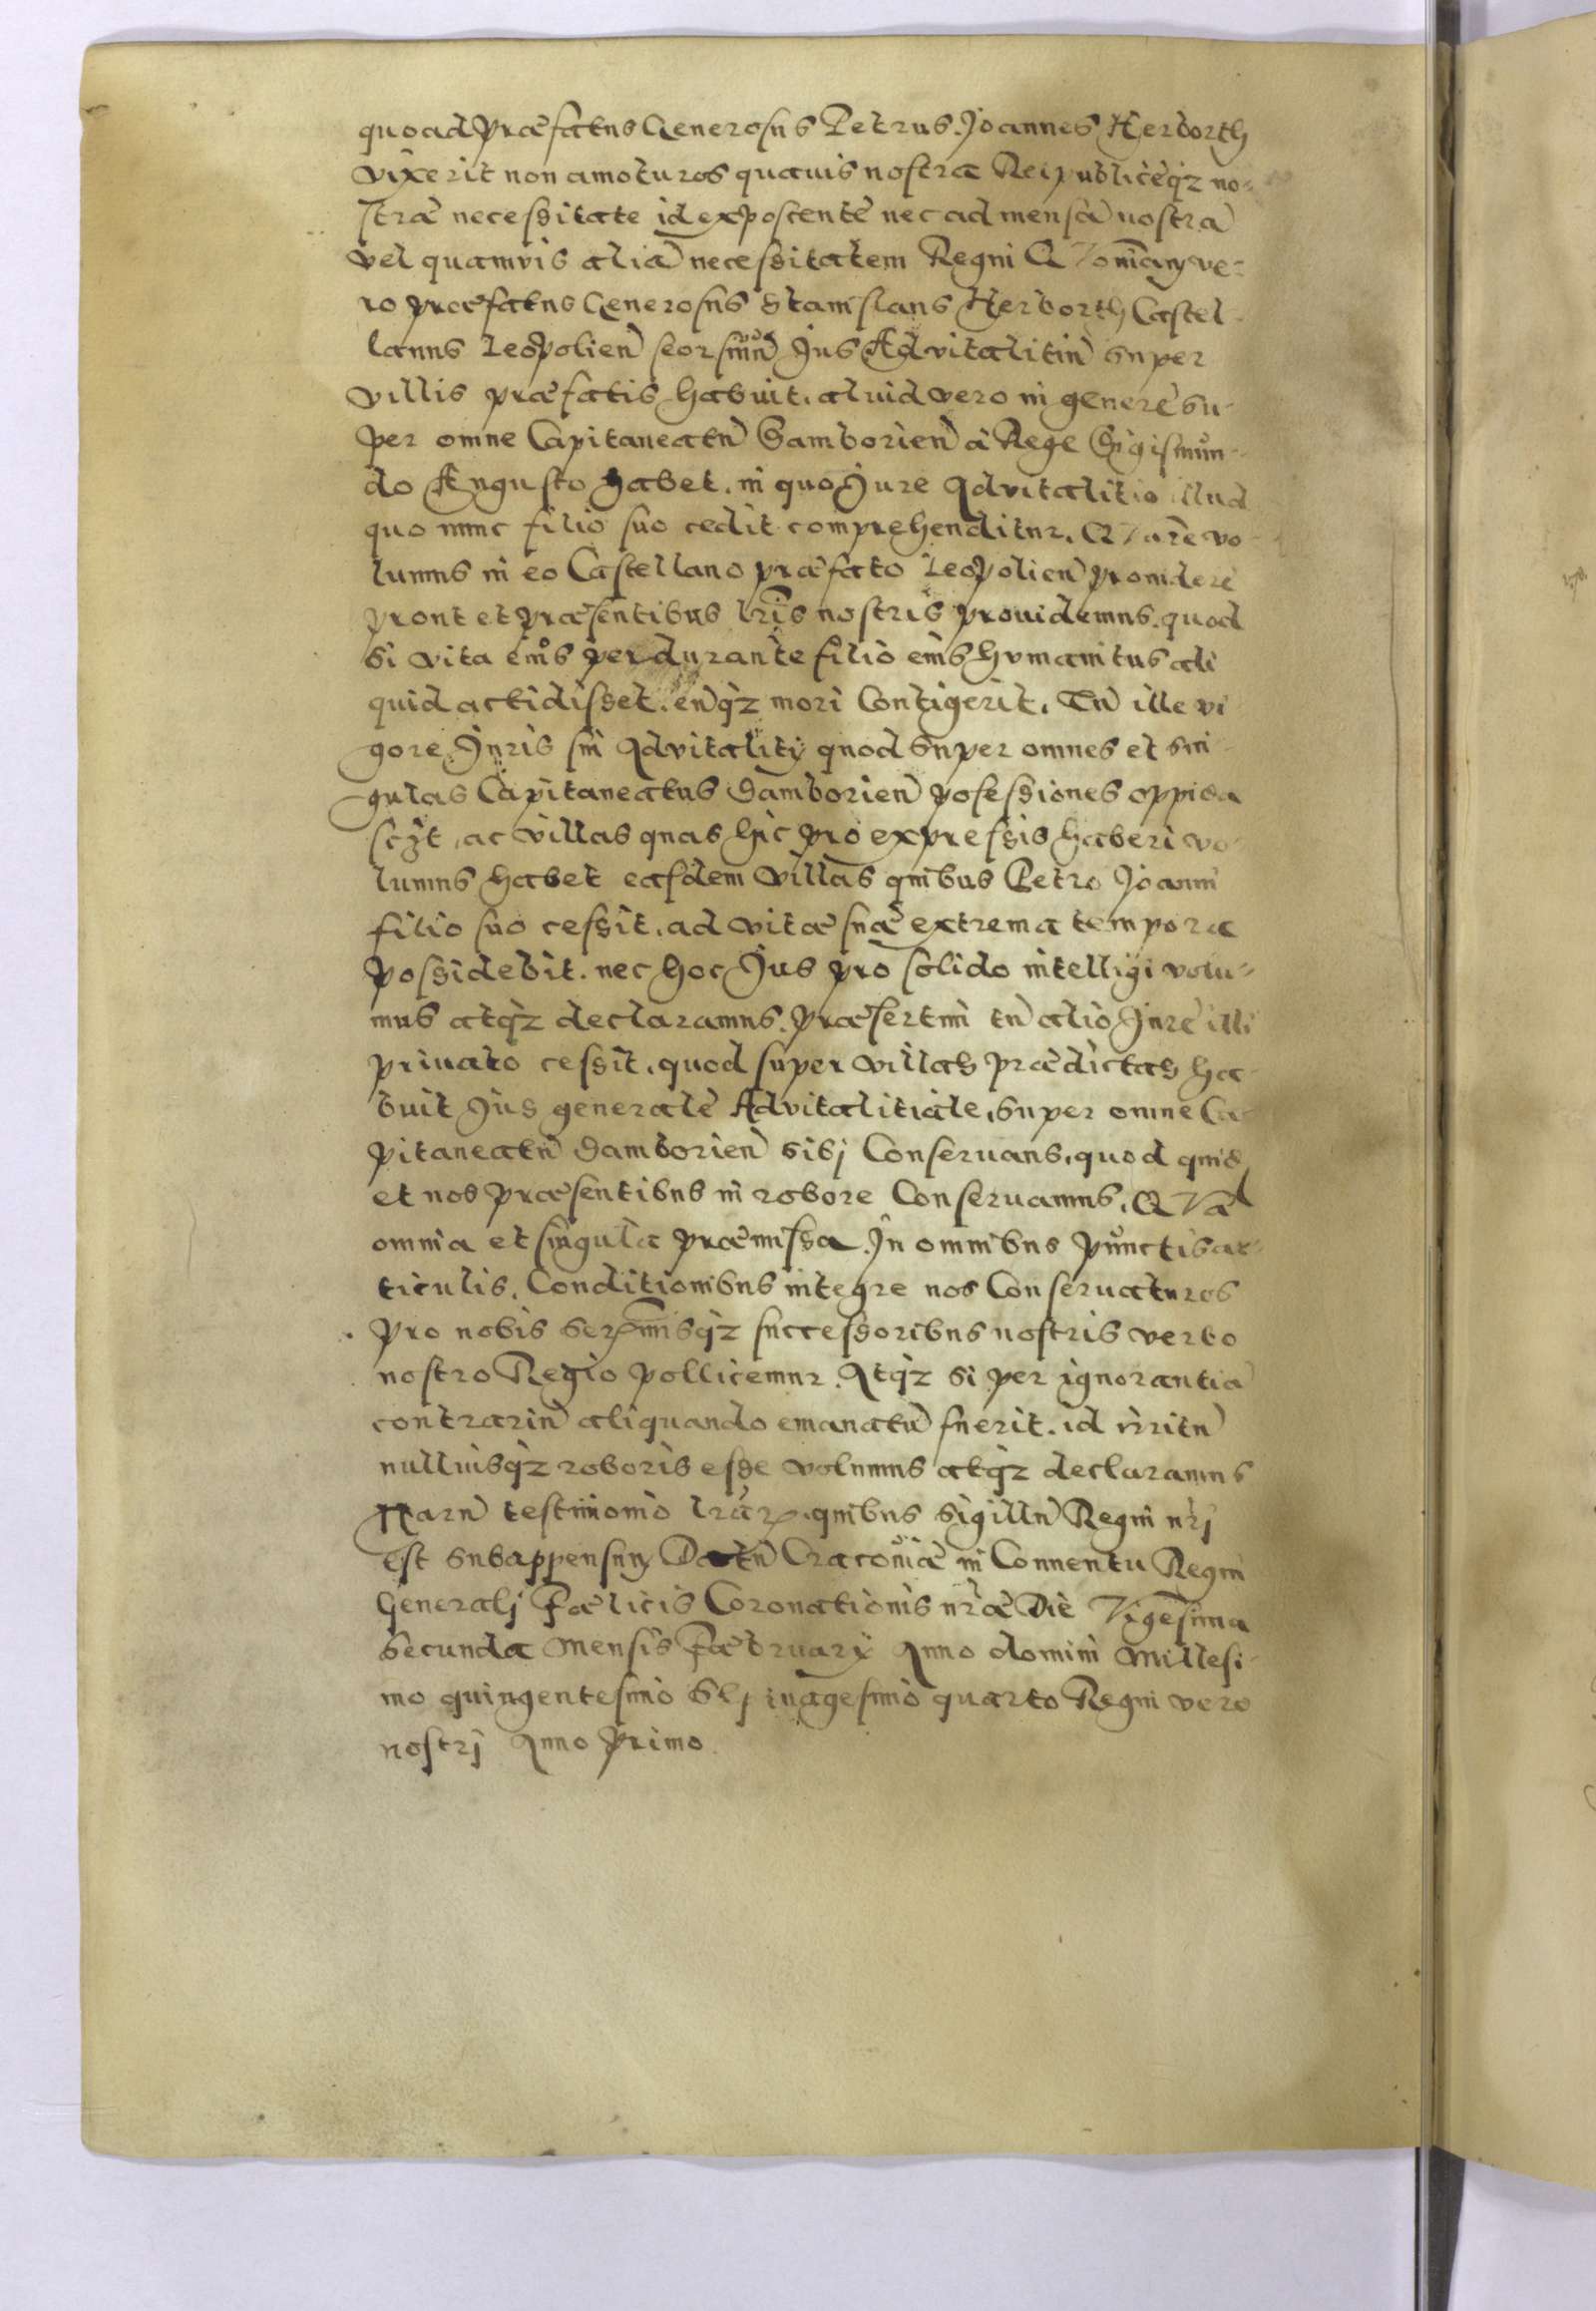 quoad præfatus Generosus Petrus Joannes Herborth
vixerit non amoturos quauis nostra Reipublicęqz no-
stræ necessitate id exposcente nec ad mensã nostrã
vel quamvis aliã necessitatem Regni QVoniam ve-
ro præfatus Generosus Stanislaus Herborth Castel-
lanus Leopolien seorsiuũ Jus Advitalitiũ super
villis præfatis habuit, aliud vero in genere su-
per omne Capitaneatũ Samborien à Rege Sigismun-
do Augusto habet, in quo Jure Advitalitio illud
quo nunc filio suo cedit comprehenditur. QVare vo-
lumus in eo Castellano præfato Leopolien prouidere
prout et præsentibus lr̃is nostris prouidemus. quod
si vita eius perdurante filio eius humanitus ali
quid accidisset. eũqz mori Contigerit. Tũ ille vi-
gore Juris sui Advitalitij quod super omnes et sin-
gulas Capitaneatus Samborien posessiones oppida
sczt, ac villas quas hic pro expressis haberi vo-
lumus habet easdem villas quibus Petro Joanni
filio suo cessit. ad vitæ suæ extrema tempora
possidebit. nec hoc Jus pro solido intelligi volu-
mus atqz declaramus. præsertim cũ alio Jure illi
priuato cessit. quod super villas prædictas ha-
buit Jus generale Advitalitiale, super omne Ca-
pitaneatũ Samborien sibj Conseruans, quod quid
et nos præsentibus in robore Conseruamus. QVæ
omnia et singula præmissa. In omnibus punctis ar-
ticulis, Conditionibus integre nos Conseruaturos
pro nobis Ser misqz successoribus nostris verbo
nostro Regio pollicemur. Atqz si per ignorantiã
contrariũ aliquando emanatũ fuerit. id irritũ
nulliusqz roboris esse volumus atqz declaramus
Harũ testimonio lr̃ar. quibus sigillũ Regni nr̃j
est subappensum Datũ Cracouiæ in Conuentu Regni
Generalj Fælicis Coronationis nr̃æ Die Vigesima
Secunda Mensis Fæbruarij Anno domini Millesi-
mo quingentesimo Sljtuagesimo quarto Regni vero
nostrj Anno primo.